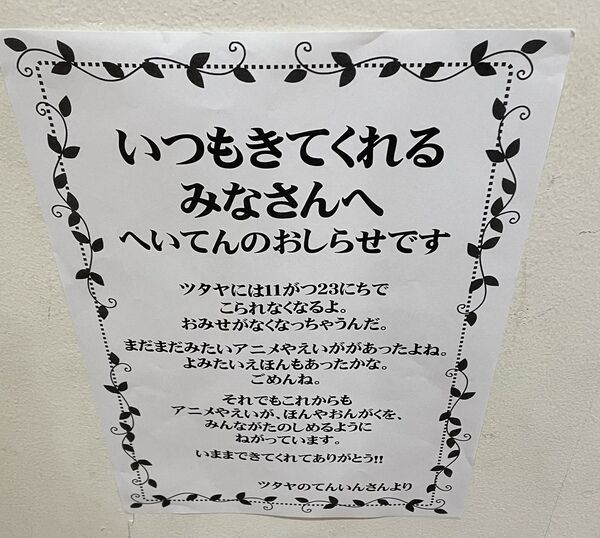 いつもきてくれる
みなさんへ
へいてんのおしらせです
ツタヤには11がつ23にちで
こられなくなるよ。
おみせがなくなっちゃうんだ。
まだまだみたいアニメやえいががあったよね。
よみたいえほんもあったかな。
ごめんね。
それでもこれからも
アニメやえいが、ほんやおんがくを、
みんながたのしめるように
ねがっています。
いままできてくれてありがとう!!
ツタヤのてんいんさんより